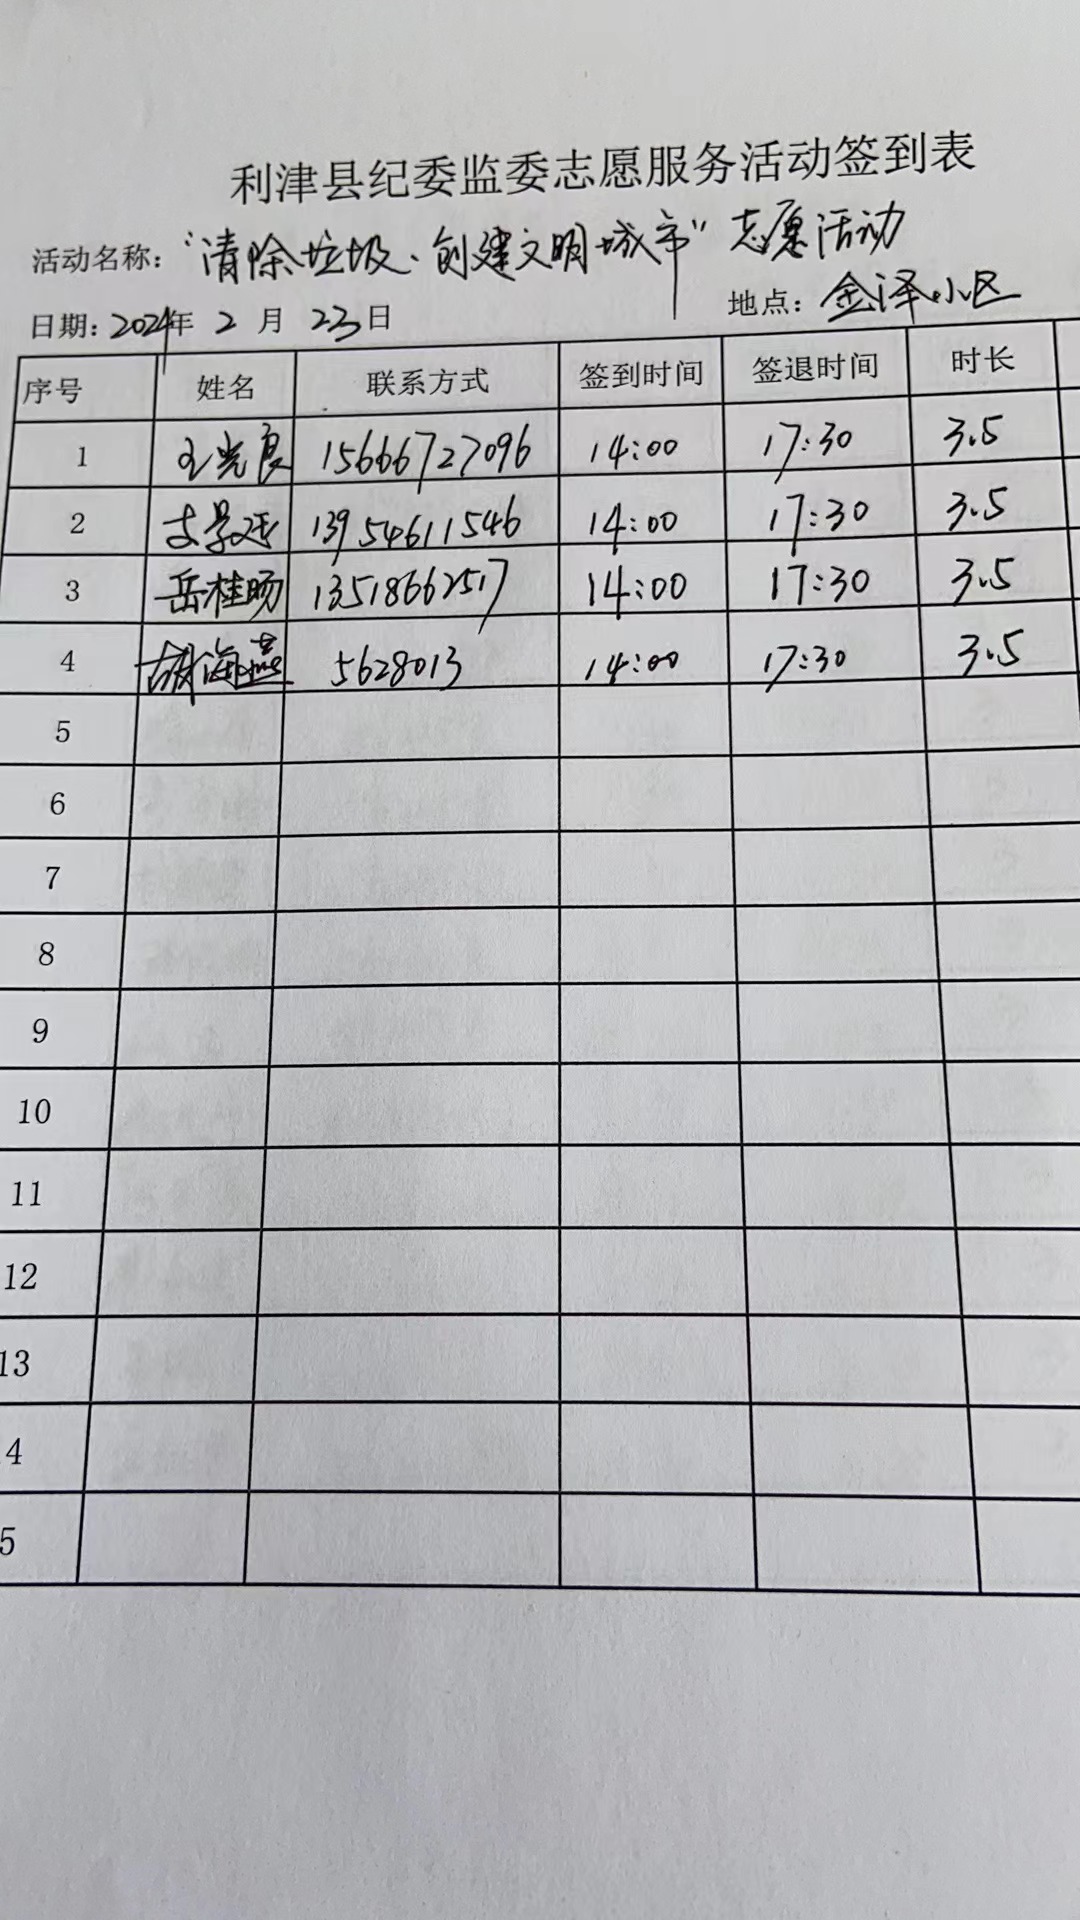 利津县纪委监委志愿服务活动签到表
活动名称：“清除垃圾、创建文明城市”志愿活动
日期：2024年 2 月 23日 地点：金泽小区
序号 姓名 联系方式 签到时间 签退时间 时长
1 王光良 15666727096 14:00 17:30 3.5
2 13954611546 14:00 17:30 3.5
3 岳桂旸 13518662517 14:00 17:30 3.5
4 胡海燕 5628013 14:00 17:30 3.5
5
6
7
8
9
10
11
12
13
4
5